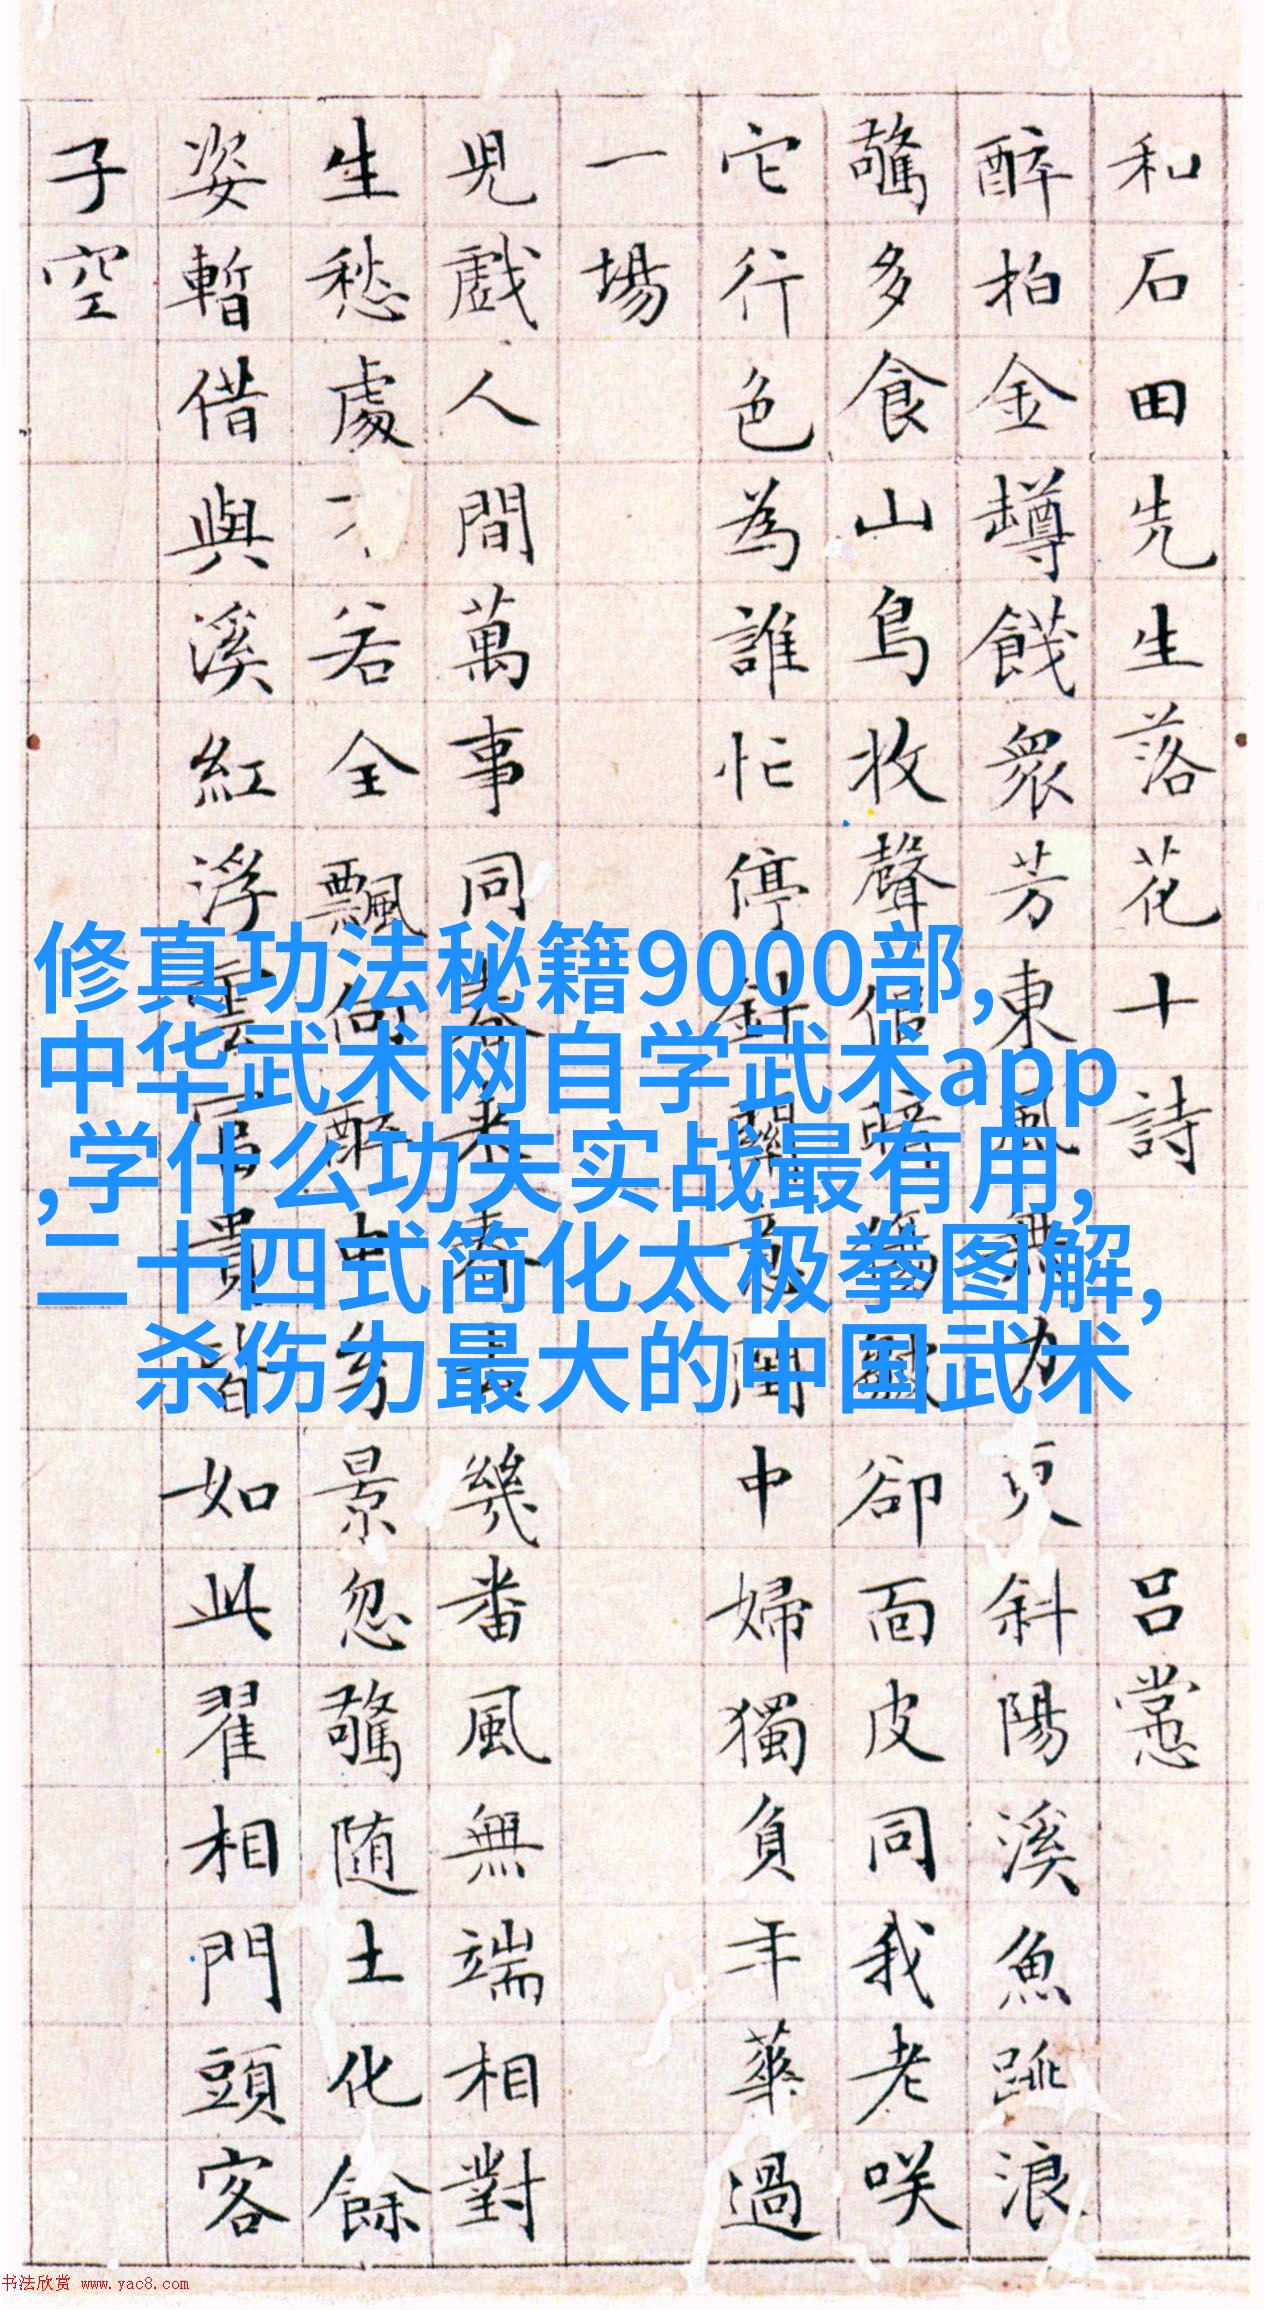 和石田先生落花十詩 吕㦂
醉拍金罇餞衆芳東風無力更斜陽溪魚跳浪
驚多食山鳥收聲卻面皮同我老咲
它行色為誰忙停針中婦獨負年華過
一場
兒戲人間萬事同幾番風無端相對
生愁處不若全飄景忽驚随土化餘
姿暫借與溪紅浮雲富貴皆如此翟相門頭客
子空
修真功法秘籍9000部,
中华武术网自学武术app
,学什么功夫实战最有用,
二十四式简化太极拳图解,
杀伤力最大的中国武术
书法欣赏 www.yac8.com